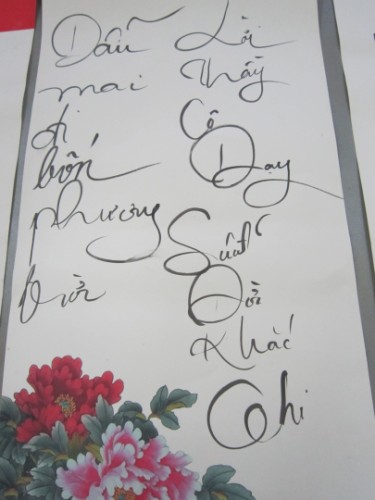 Dẫu
mai
đi
bốn
phương
trời
Lời
thầy
Cô
Dạy
Suốt
Đời
Khắc
Ghi